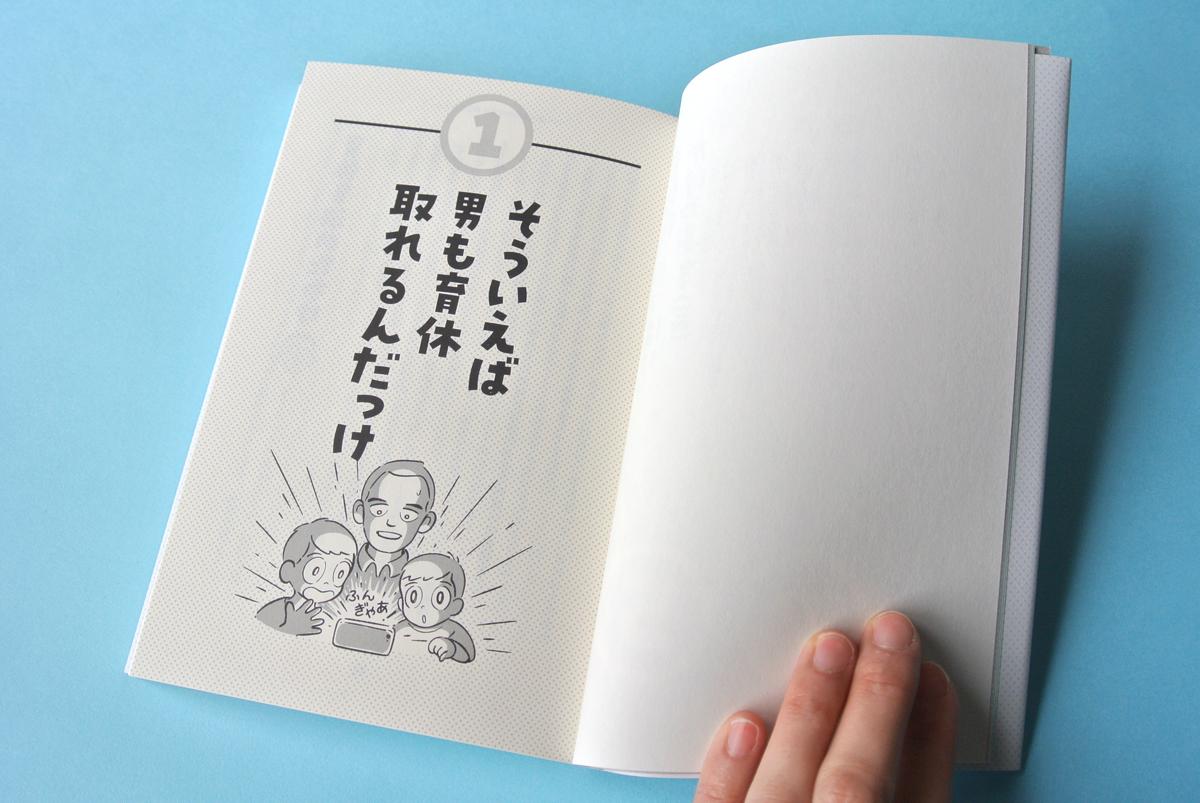 1
そういえば
男も育休
取れるんだっけ
ふん
ぎゃあ